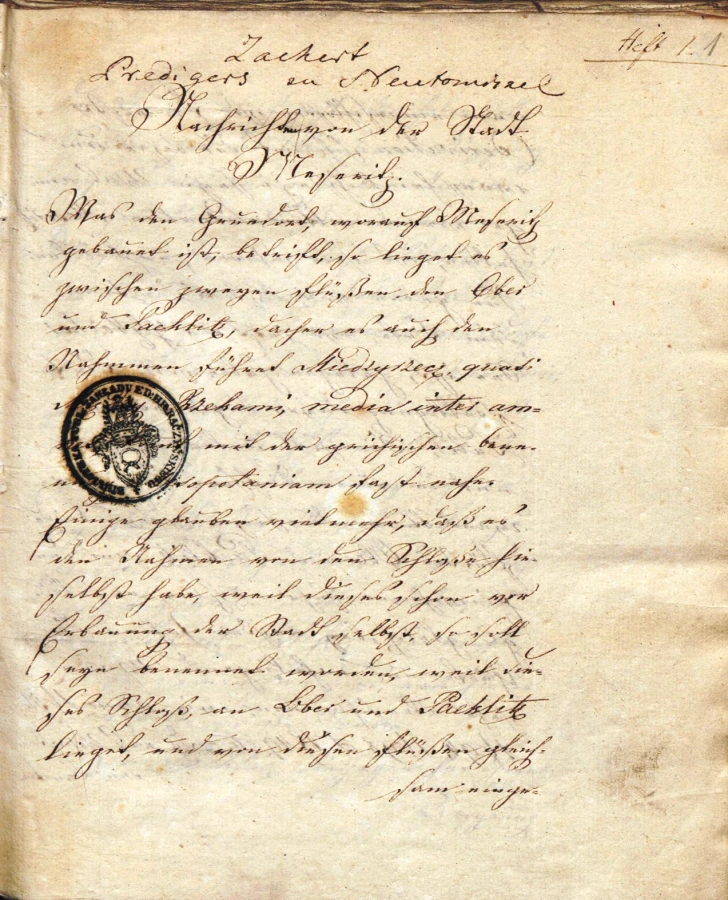 Heft 1. 1
Zachert
Predigers zu Neutomiszel
Nachrichten von der Stadt
Meseritz.
Was den Grundort, worauf Meseritz
gebauet ist, betrifft, so lieget es
zwischen zweyen Flüßen den Ober
und Packlitz, daher es auch den
Nahmmen führet Miedzyrzecz, quasi
Rzekami, media inter am=
mit der grichischen bene=
sopotaniam fast nahe.
Einige glauben vielmehr, daß es
den Nahmen von den Schloße hie=
selbst habe, weil dieses schon vor
Erbauung der Stadt selbst, so soll
seyn benennet worden, weil die=
ses Schloß, an Ober und Packlitz
lieget, und von diesen Flüßen gleich=
sam einge=